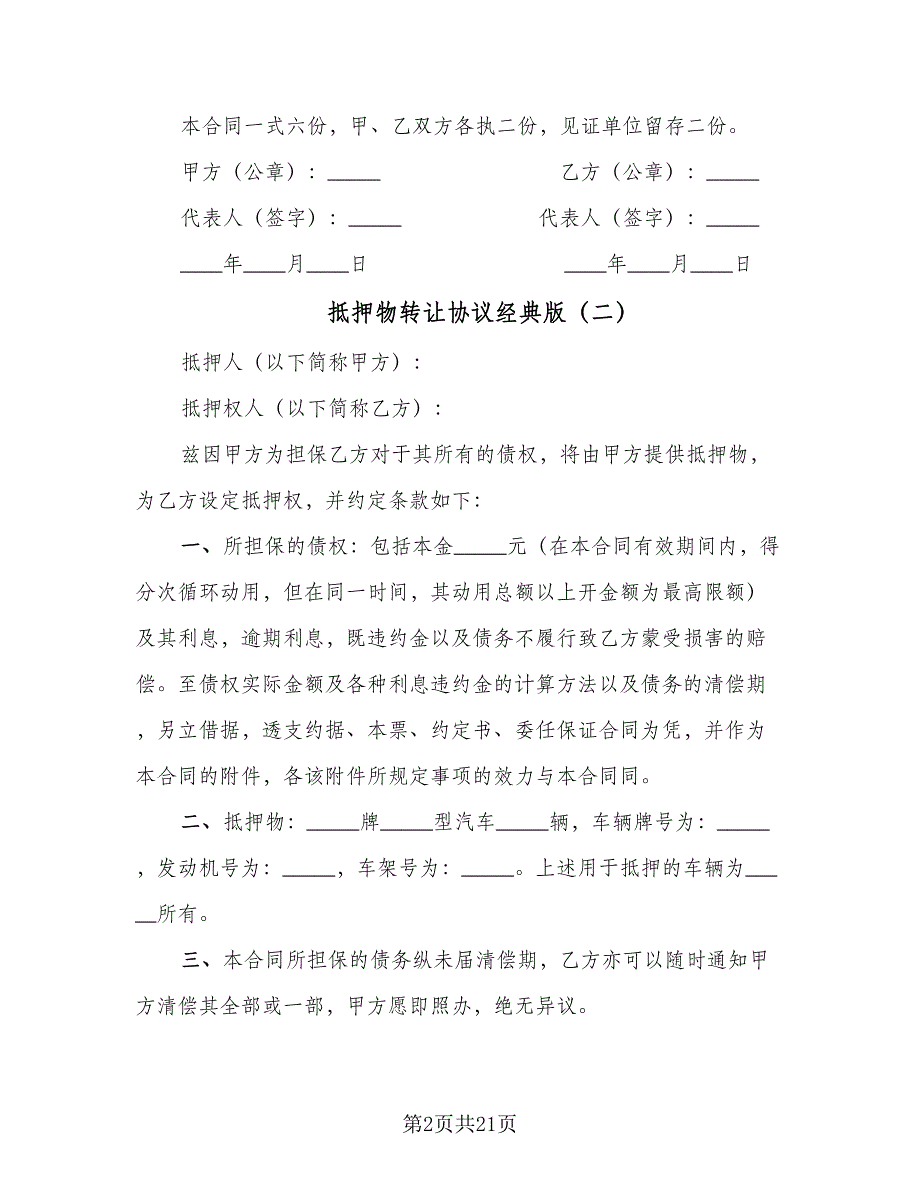 本合同一式六份，甲、乙双方各执二份，见证单位留存二份。
甲方（公章）：_____ 乙方（公章）：_____
代表人（签字）：_____ 代表人（签字）：_____
____年____月____日 ____年____月____日
抵押物转让协议经典版（二）
抵押人（以下简称甲方）：
抵押权人（以下简称乙方）：
兹因甲方为担保乙方对于其所有的债权，将由甲方提供抵押物，
为乙方设定抵押权，并约定条款如下：
一、所担保的债权：包括本金_____元（在本合同有效期间内，得
分次循环动用，但在同一时间，其动用总额以上开金额为最高限额）
及其利息，逾期利息，既违约金以及债务不履行致乙方蒙受损害的赔
偿。至债权实际金额及各种利息违约金的计算方法以及债务的清偿期
，另立借据，透支约据、本票、约定书、委任保证合同为凭，并作为
本合同的附件，各该附件所规定事项的效力与本合同同。
二、抵押物：_____牌_____型汽车_____辆，车辆牌号为：_____
，发动机号为：_____，车架号为：_____。上述用于抵押的车辆为___
__所有。
三、本合同所担保的债务纵未届清偿期，乙方亦可以随时通知甲
方清偿其全部或一部，甲方愿即照办，绝无异议。
第2页共21页